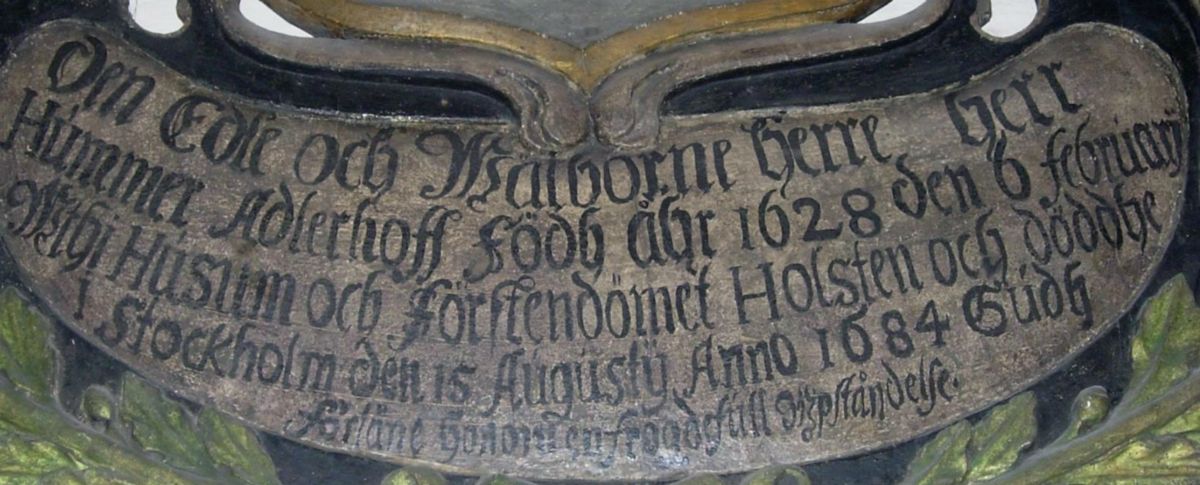 Den Edle och Wälborne Herre Herr
Hümmer Adlerhoff Födh åhr 1628 den 6 februarij
Wthi Husum och Förstendömet Holsten och döddhe
I Stockholm den 15 Augustÿ Anno 1684 Gudh
förläne honom en frögdefull Wpståndelse.